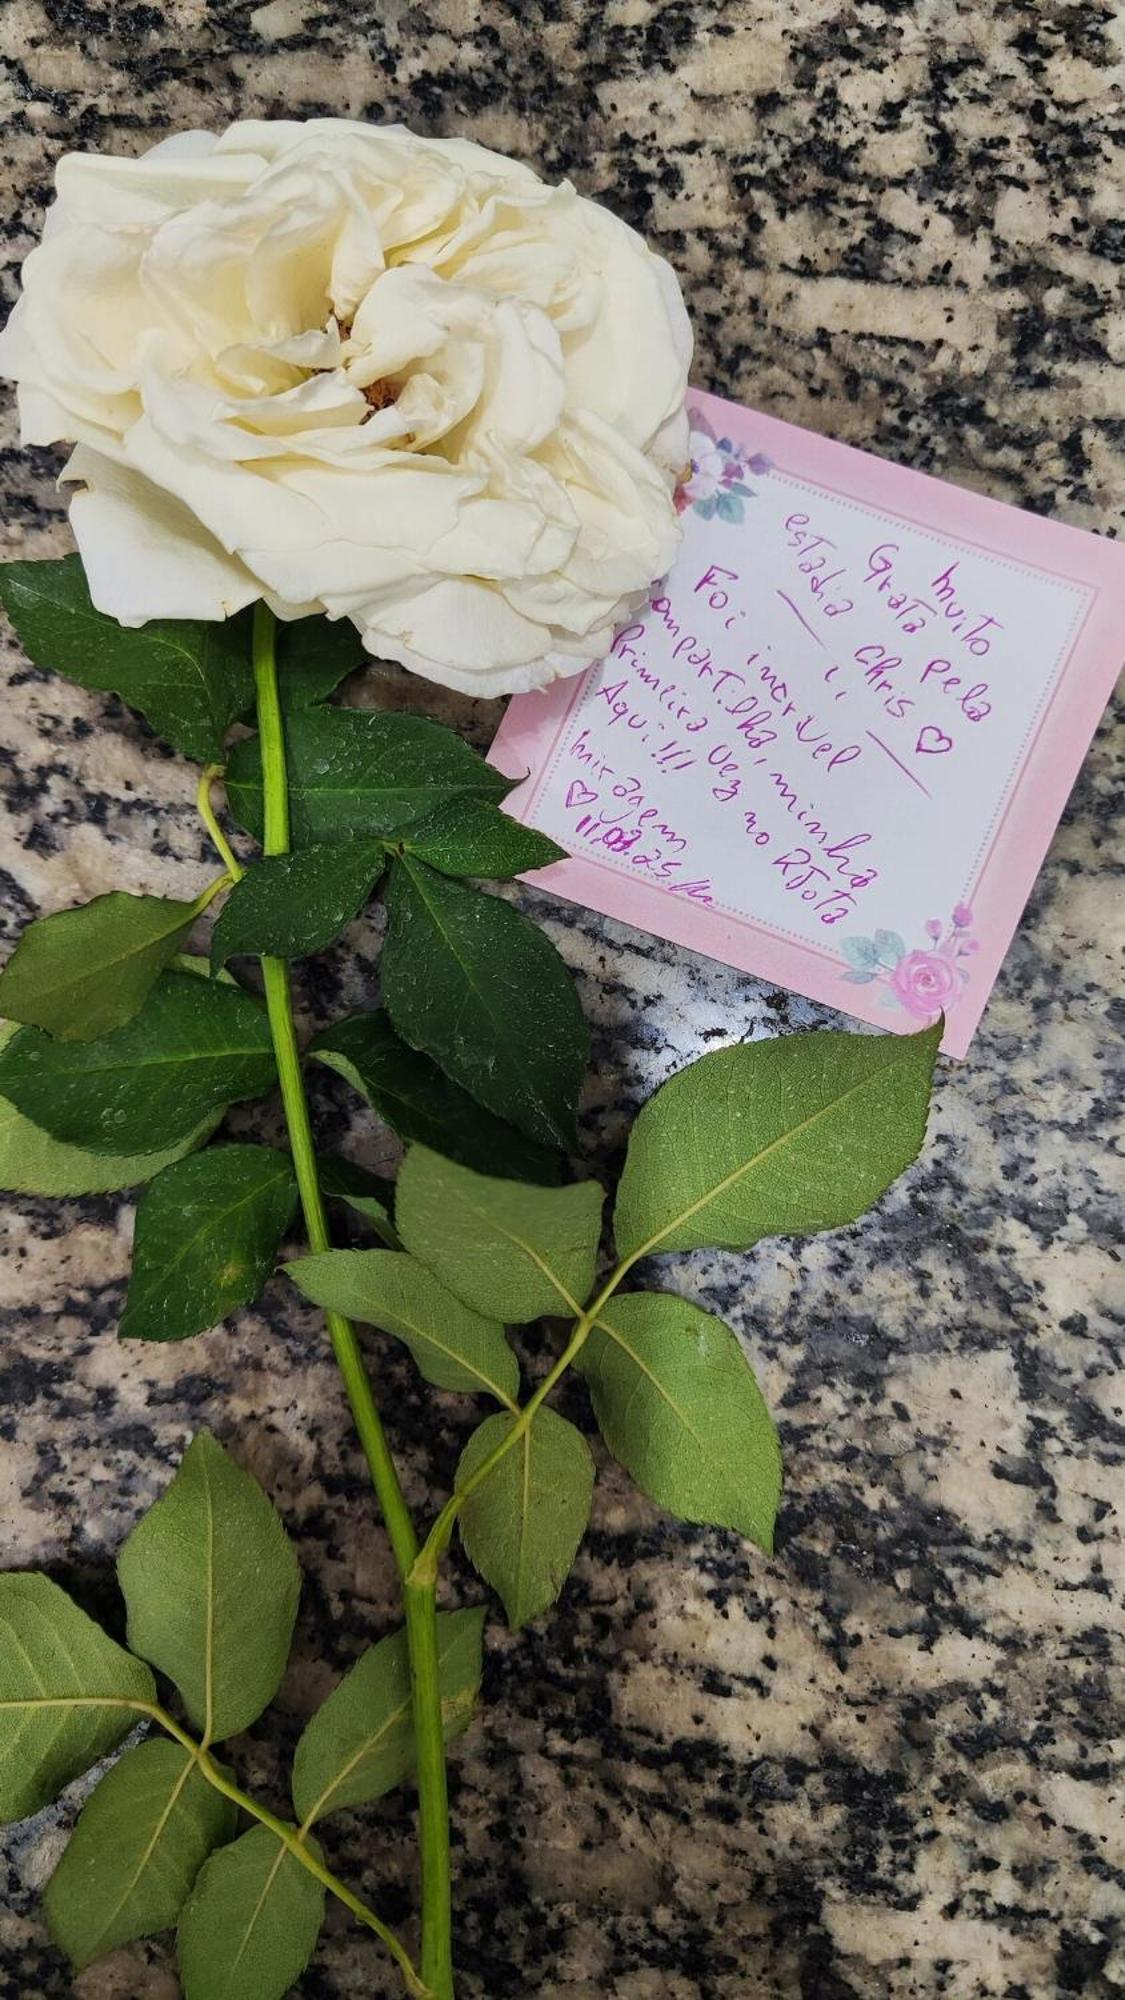 Muito
Grata pela
estadia Chris ♡
Foi incrivel
compartilha, minha
Primeira vez no
Aqui!!!
♡
11.02.25